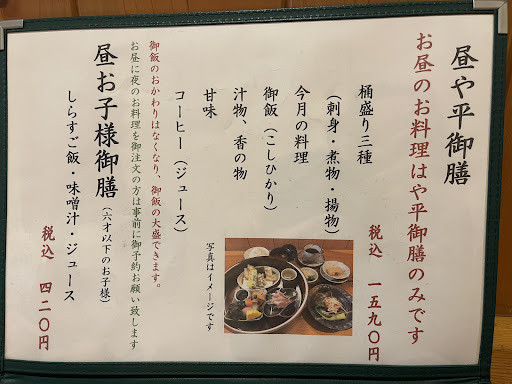 昼や平御膳
お昼のお料理はや平御膳のみです
税込 一五九〇円
桶盛り三種
（刺身・煮物・揚物）
今月の料理
御飯（こしひかり）
汁物、香の物
甘味
コーヒー（ジュース）
写真はイメージです
御飯のおかわりはなくなり、御飯の大盛できます。
お昼に夜のお料理を御注文の方は事前に御予約お願い致します
昼お子様御膳（六才以下のお子様）
しらすご飯・味噌汁・ジュース
税込 四二〇円